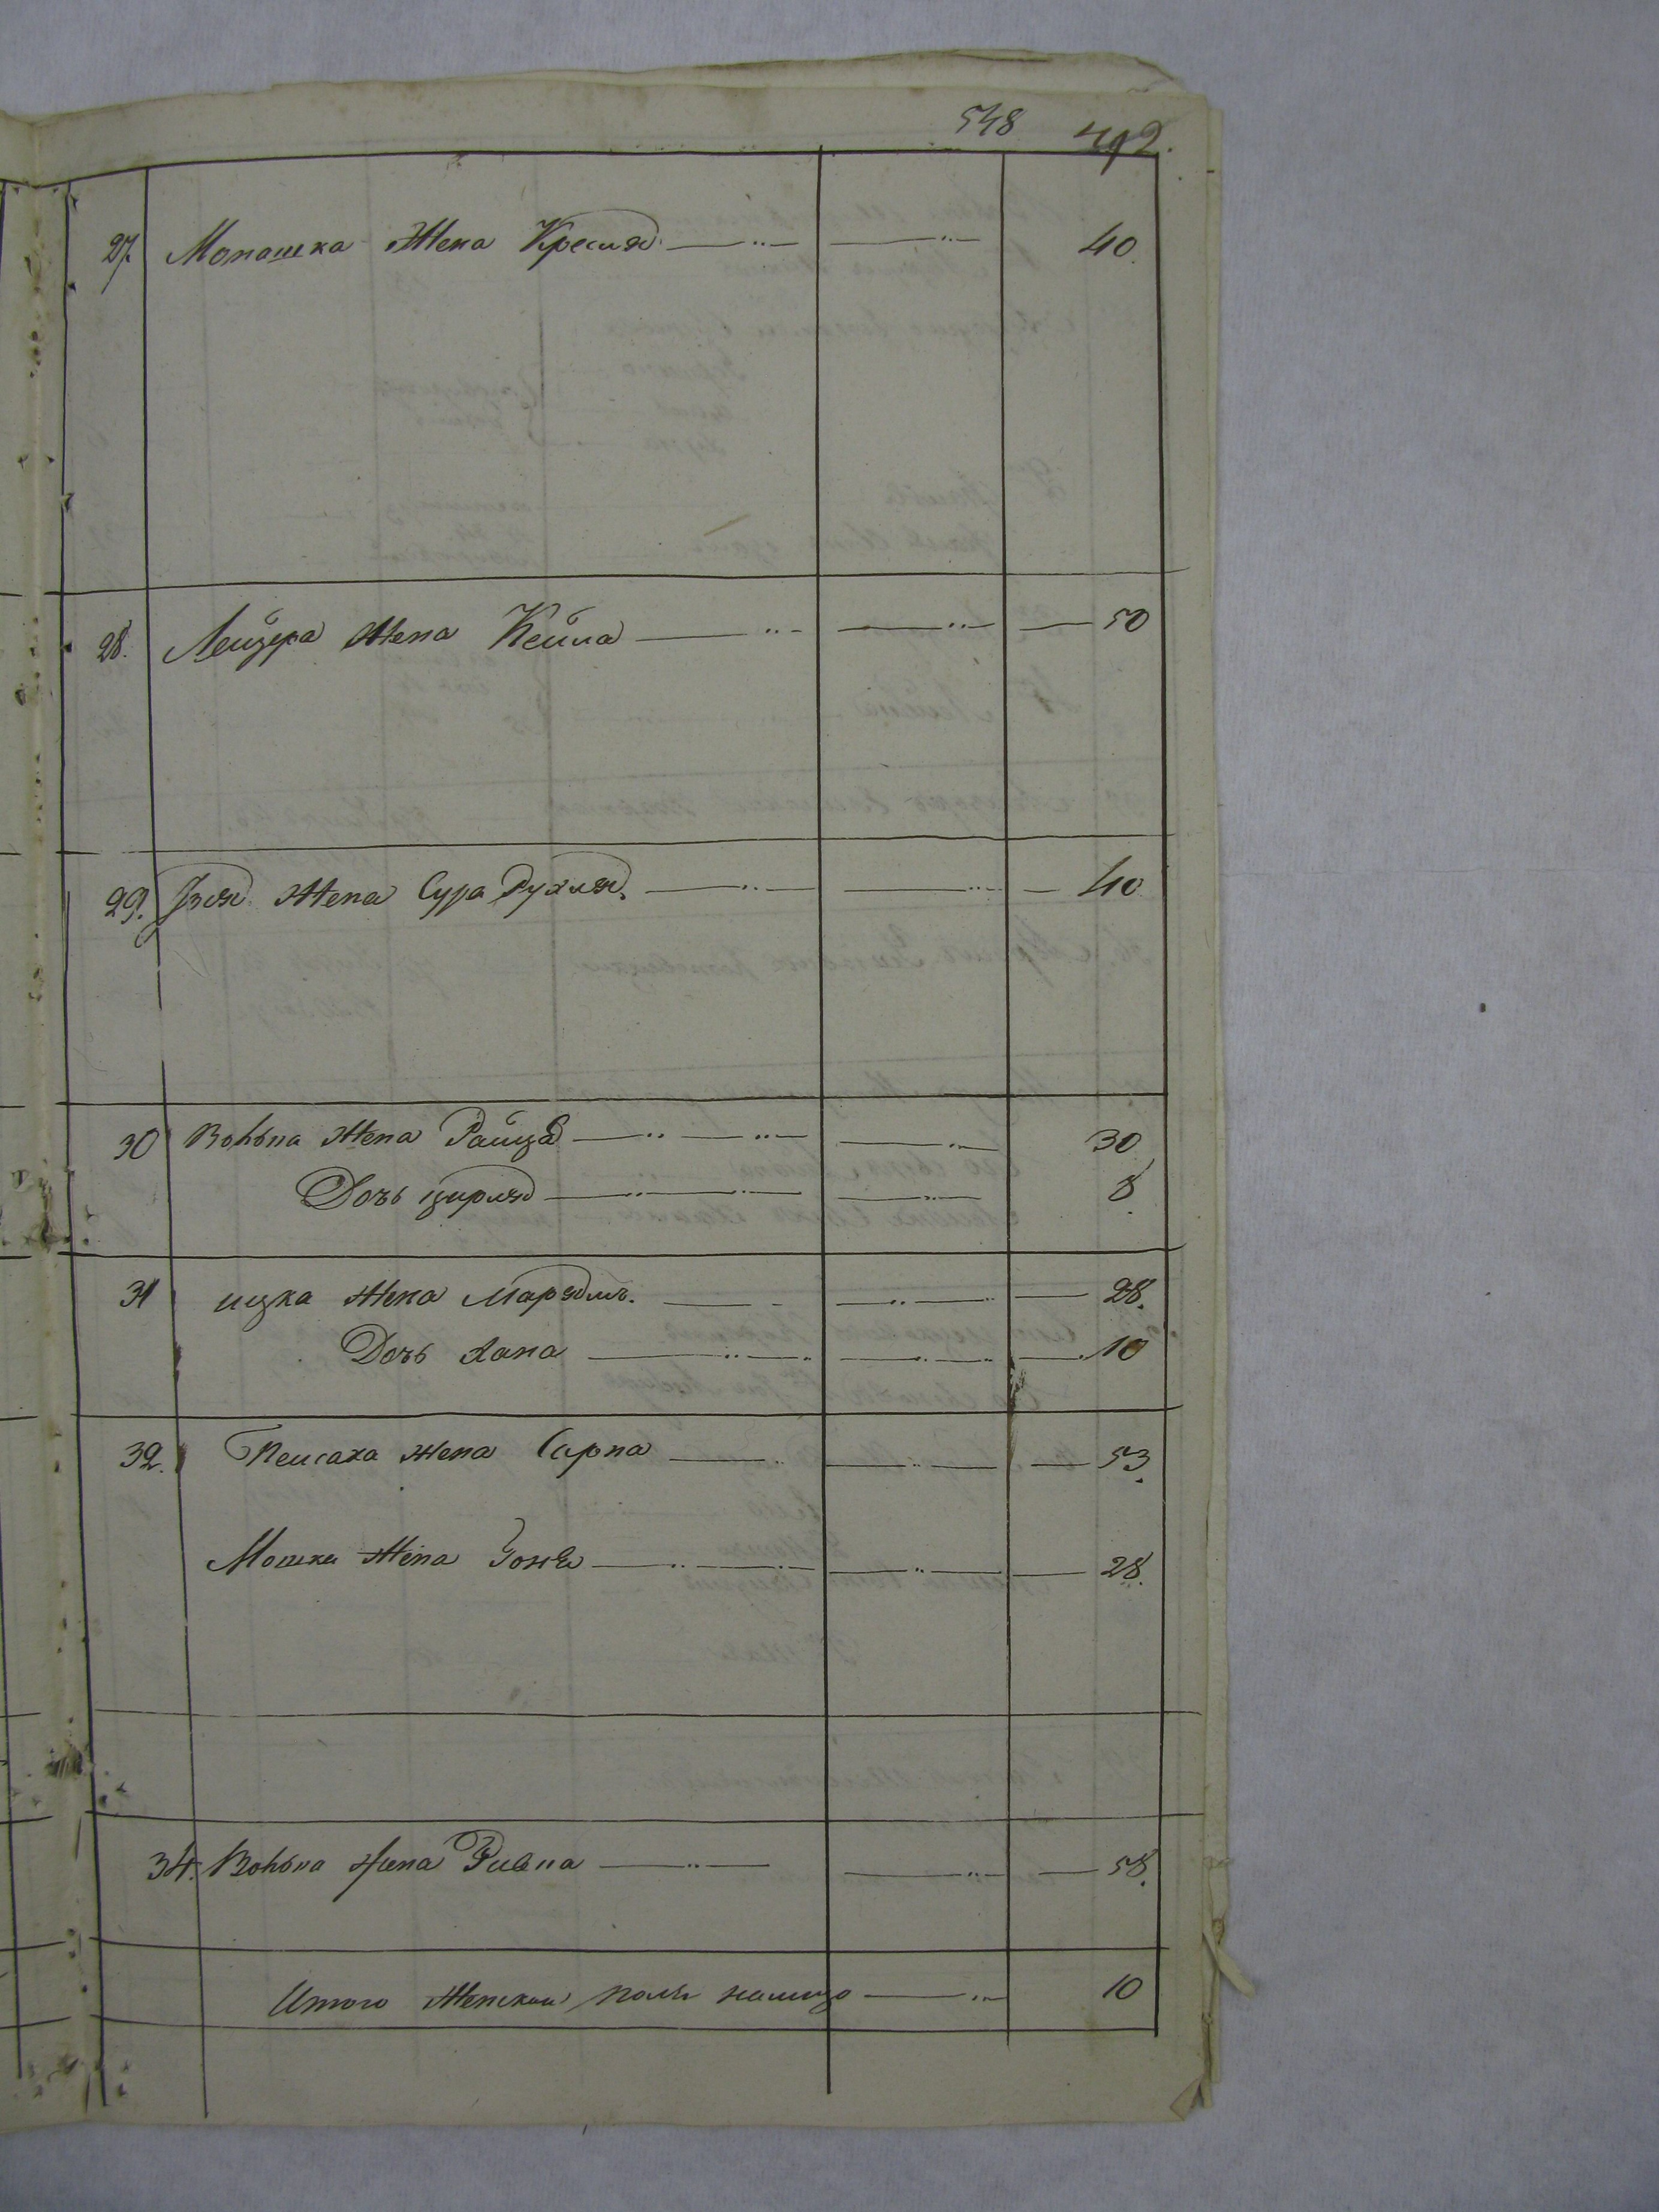 548 492.
27. Монашка Жена Кресия 40.
28. Лейзера Жена Кейла 50
29. Жена Сура Рухля. 40
30 Вольвна Жена Райза 30
Дочь цирля 8
31 ицка Жена Марьямъ. 28.
Дочь Хана 10
32. Пейсаха Жена Сирна 53.
Мошки Жена 28.
34. Вольвна Жена Ривка 58.
Итого Женска полу налицо 10